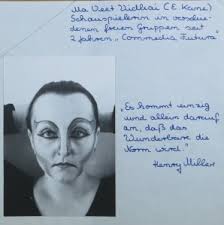 Ma Veet Vidhai (E. Kane)
Schauspielerin in verschie-
denen freien Gruppen seit
2 Jahren „Commedia Futura"
„Es kommt einzig
und allein darauf
an, daß das
Wunderbare die
Norm wird."
Henry Miller